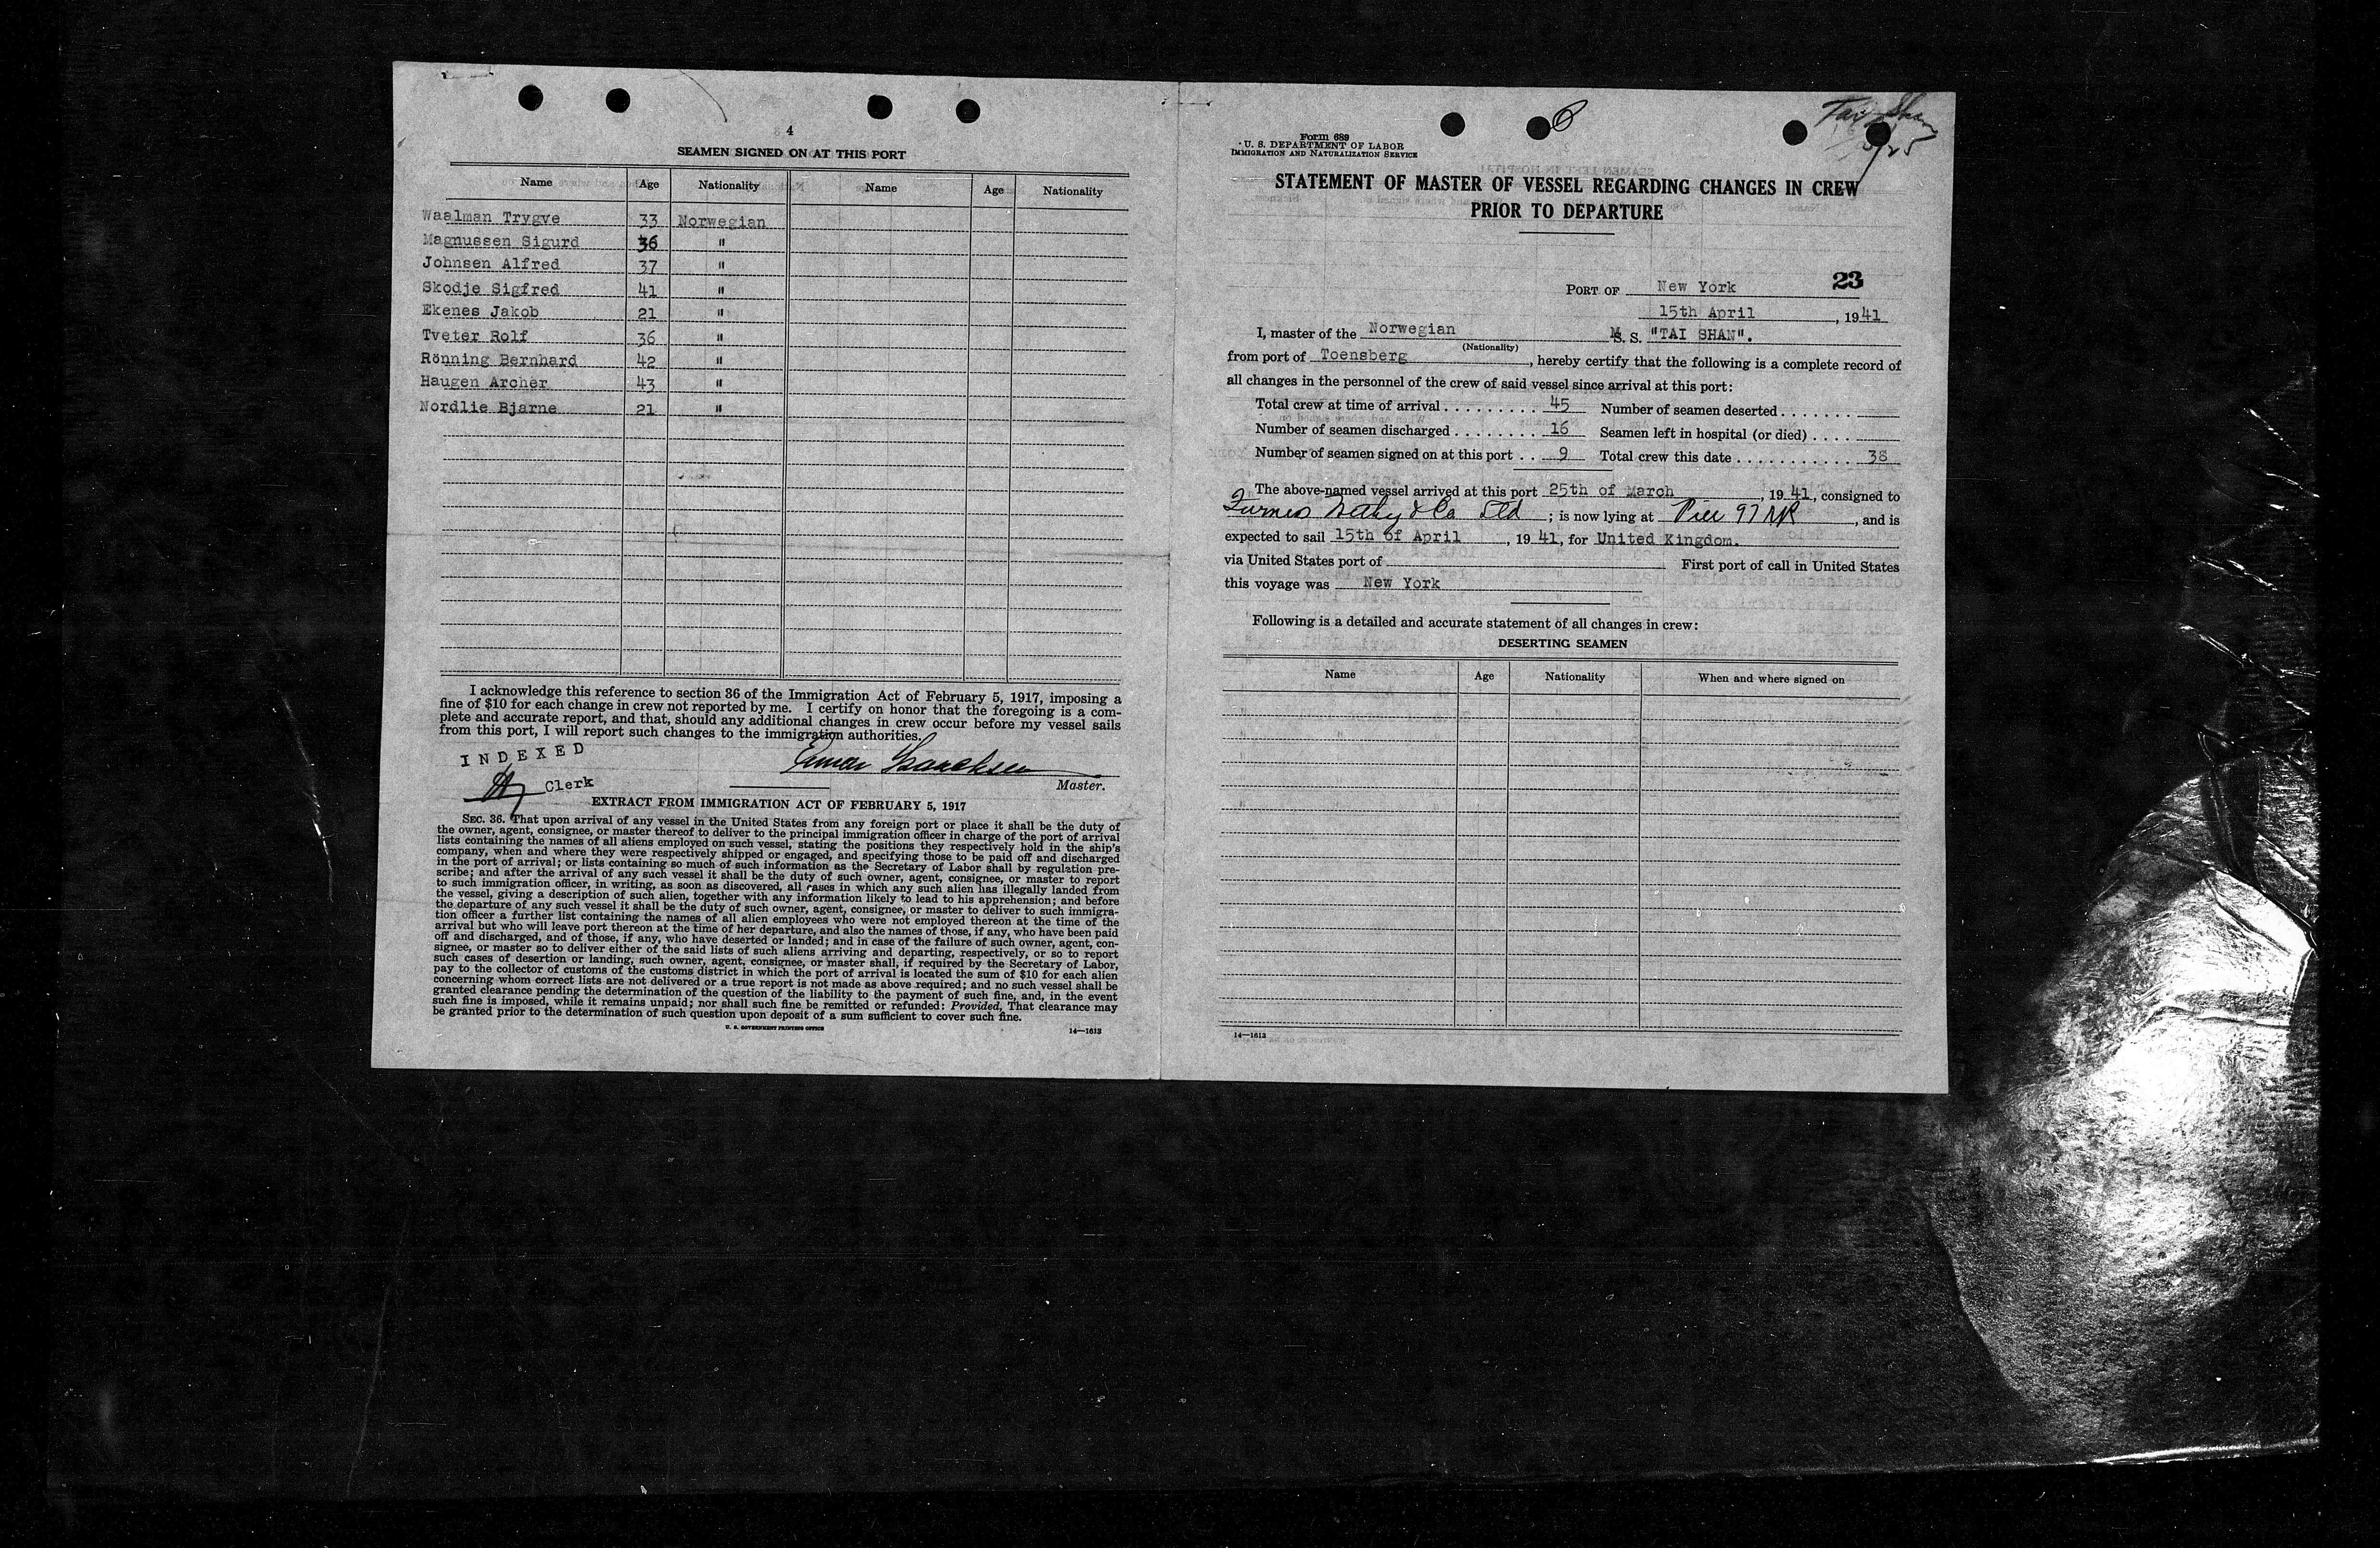 4
SEAMEN SIGNED ON AT THIS PORT
Name Age Nationality Name Age Nationality
Waalman Trygve 33 Norwegian
Magnussen Sigurd 36 "
Johnsen Alfred 37 "
Skodje Sigfred 41 "
Ekenes Jakob 21 "
Tveter Rolf 36 "
Rönning Bernhard 42 "
Haugen Archer 43 "
Nordlie Bjarne 21 "
I acknowledge this reference to section 36 of the Immigration Act of February 5, 1917, imposing a
fine of $10 for each change in crew not reported by me. I certify on honor that the foregoing is a com-
plete and accurate report, and that, should any additional changes in crew occur before my vessel sails
from this port, I will report such changes to the immigration authorities.
INDEXED
Einar Isaachsen
Clerk
Master.
EXTRACT FROM IMMIGRATION ACT OF FEBRUARY 5, 1917
SEC. 36. That upon arrival of any vessel in the United States from any foreign port or place it shall be the duty of
the owner, agent, consignee, or master thereof to deliver to the principal immigration officer in charge of the port of arrival
lists containing the names of all aliens employed on such vessel, stating the positions they respectively hold in the ship's
company, when and where they were respectively shipped or engaged, and specifying those to be paid off and discharged
in the port of arrival; or lists containing so much of such information as the Secretary of Labor shall by regulation pre-
scribe; and after the arrival of any such vessel it shall be the duty of such owner, agent, consignee, or master to report
to such immigration officer, in writing, as soon as discovered, all cases in which any such alien has illegally landed from
the vessel, giving a description of such alien, together with any information likely to lead to his apprehension; and before
the departure of any such vessel it shall be the duty of such owner, agent, consignee, or master to deliver to such immigra-
tion officer a further list containing the names of all alien employees who were not employed thereon at the time of the
arrival but who will leave port thereon at the time of her departure, and also the names of those, if any, who have been paid
off and discharged, and of those, if any, who have deserted or landed; and in case of the failure of such owner, agent, con-
signee, or master so to deliver either of the said lists of such aliens arriving and departing, respectively, or so to report
such cases of desertion or landing, such owner, agent, consignee, or master shall, if required by the Secretary of Labor,
pay to the collector of customs of the customs district in which the port of arrival is located the sum of $10 for each alien
concerning whom correct lists are not delivered or a true report is not made as above required; and no such vessel shall be
granted clearance pending the determination of the question of the liability to the payment of such fine, and, in the event
such fine is imposed, while it remains unpaid; nor shall such fine be remitted or refunded: Provided, That clearance may
be granted prior to the determination of such question upon deposit of a sum sufficient to cover such fine.
U. S. GOVERNMENT PRINTING OFFICE 14—1613
Tai Shan
3/25
Form 689
U. S. DEPARTMENT OF LABOR
IMMIGRATION AND NATURALIZATION SERVICE
STATEMENT OF MASTER OF VESSEL REGARDING CHANGES IN CREW
PRIOR TO DEPARTURE
PORT OF New York 23
15th April, 1941
I, master of the Norwegian M. S. "TAI SHAN".
(Nationality)
from port of Toensberg, hereby certify that the following is a complete record of
all changes in the personnel of the crew of said vessel since arrival at this port:
Total crew at time of arrival 45 Number of seamen deserted
Number of seamen discharged 16 Seamen left in hospital (or died)
Number of seamen signed on at this port 9 Total crew this date 38
The above-named vessel arrived at this port 25th of March, 1941, consigned to
Furness Withy & Co Ltd; is now lying at Pier 97 NR, and is
expected to sail 15th of April, 1941, for United Kingdom.
via United States port of First port of call in United States
this voyage was New York
Following is a detailed and accurate statement of all changes in crew:
DESERTING SEAMEN
Name Age Nationality When and where signed on
14—1613